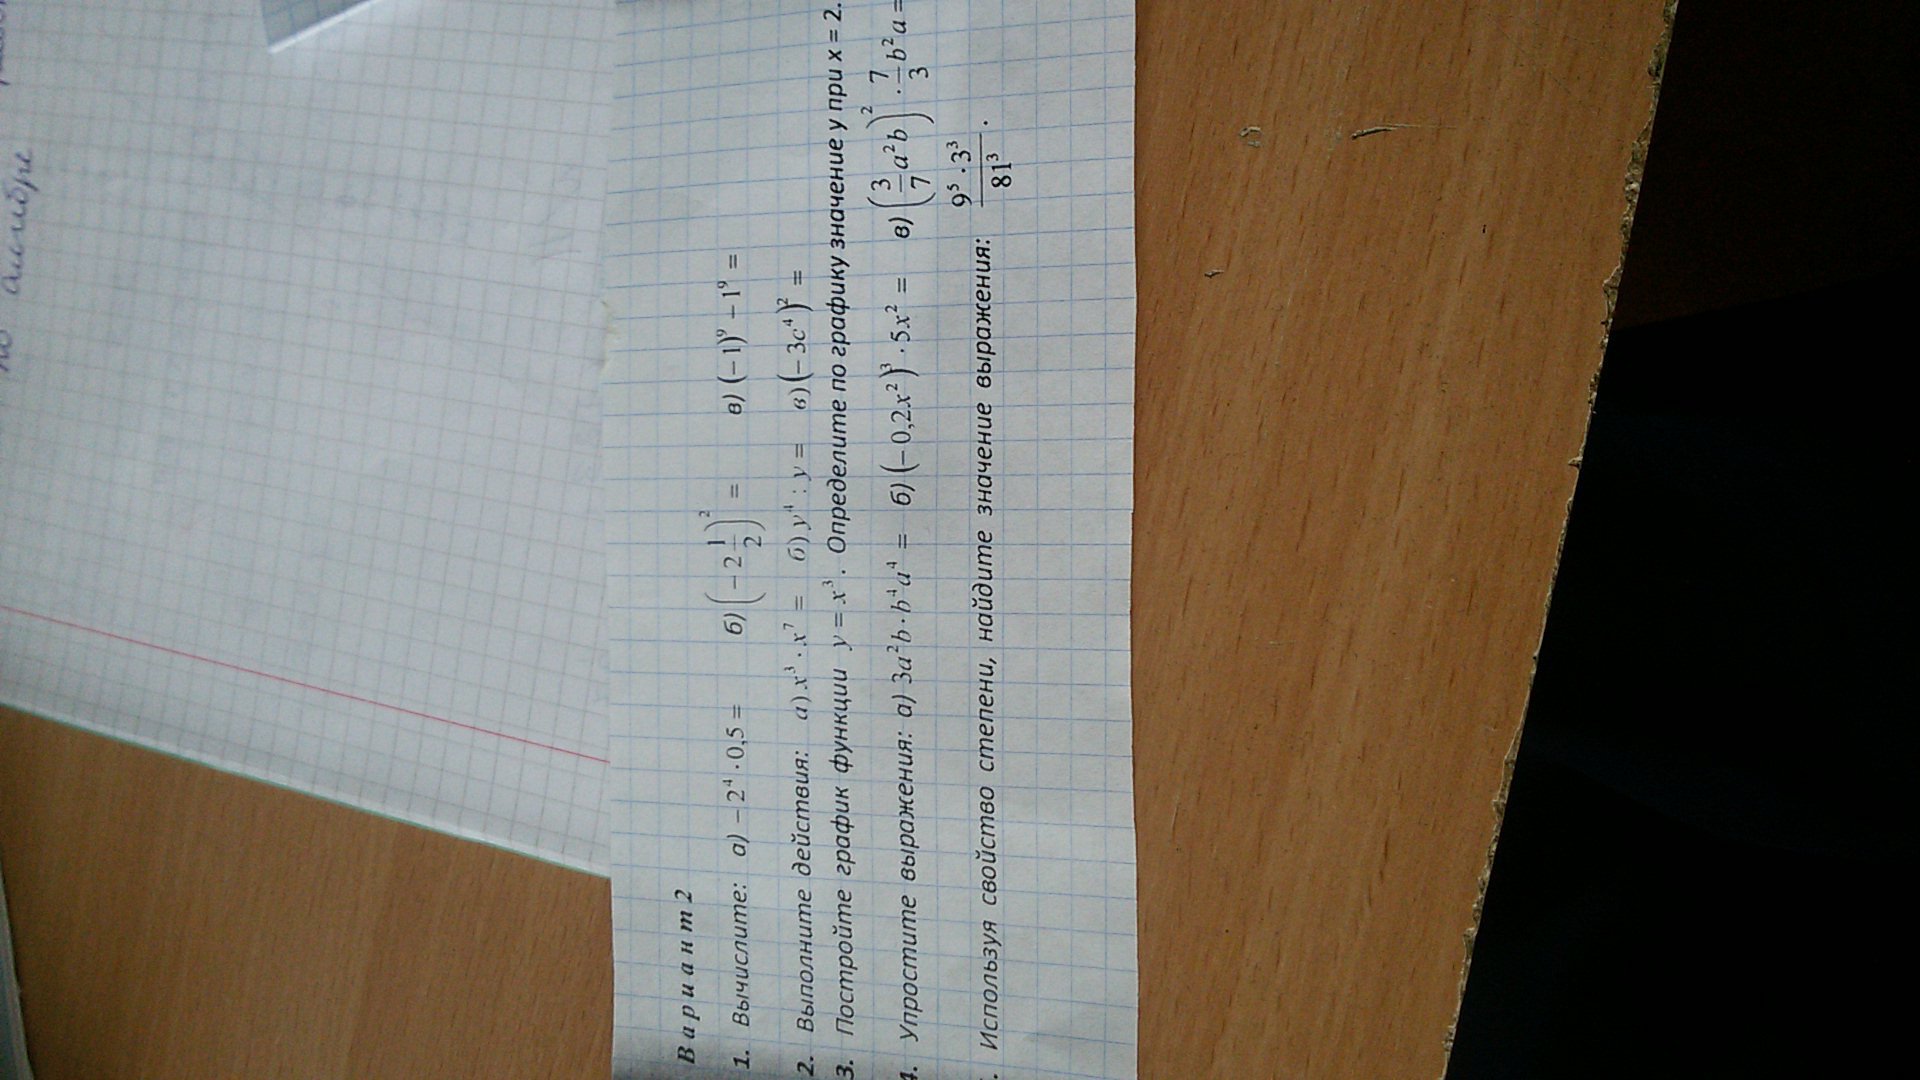 по алгебре
Вариант 2
1. Вычислите: а) −2⁴ · 0,5 = б) (−2 1/2)² = в) (−1)⁹ − 1⁹ =
2. Выполните действия: а) x³ · x⁷ = б) y⁴ : y = в) (−3c⁴)² =
3. Постройте график функции y = x³. Определите по графику значение у при х = 2.
4. Упростите выражения: а) 3a²b · b⁴a⁴ = б) (−0,2x²)³ · 5x² = в) (3/7 a²b)² · 7/3 b²a =
. Используя свойство степени, найдите значение выражения: (9⁵ · 3³)/81³.